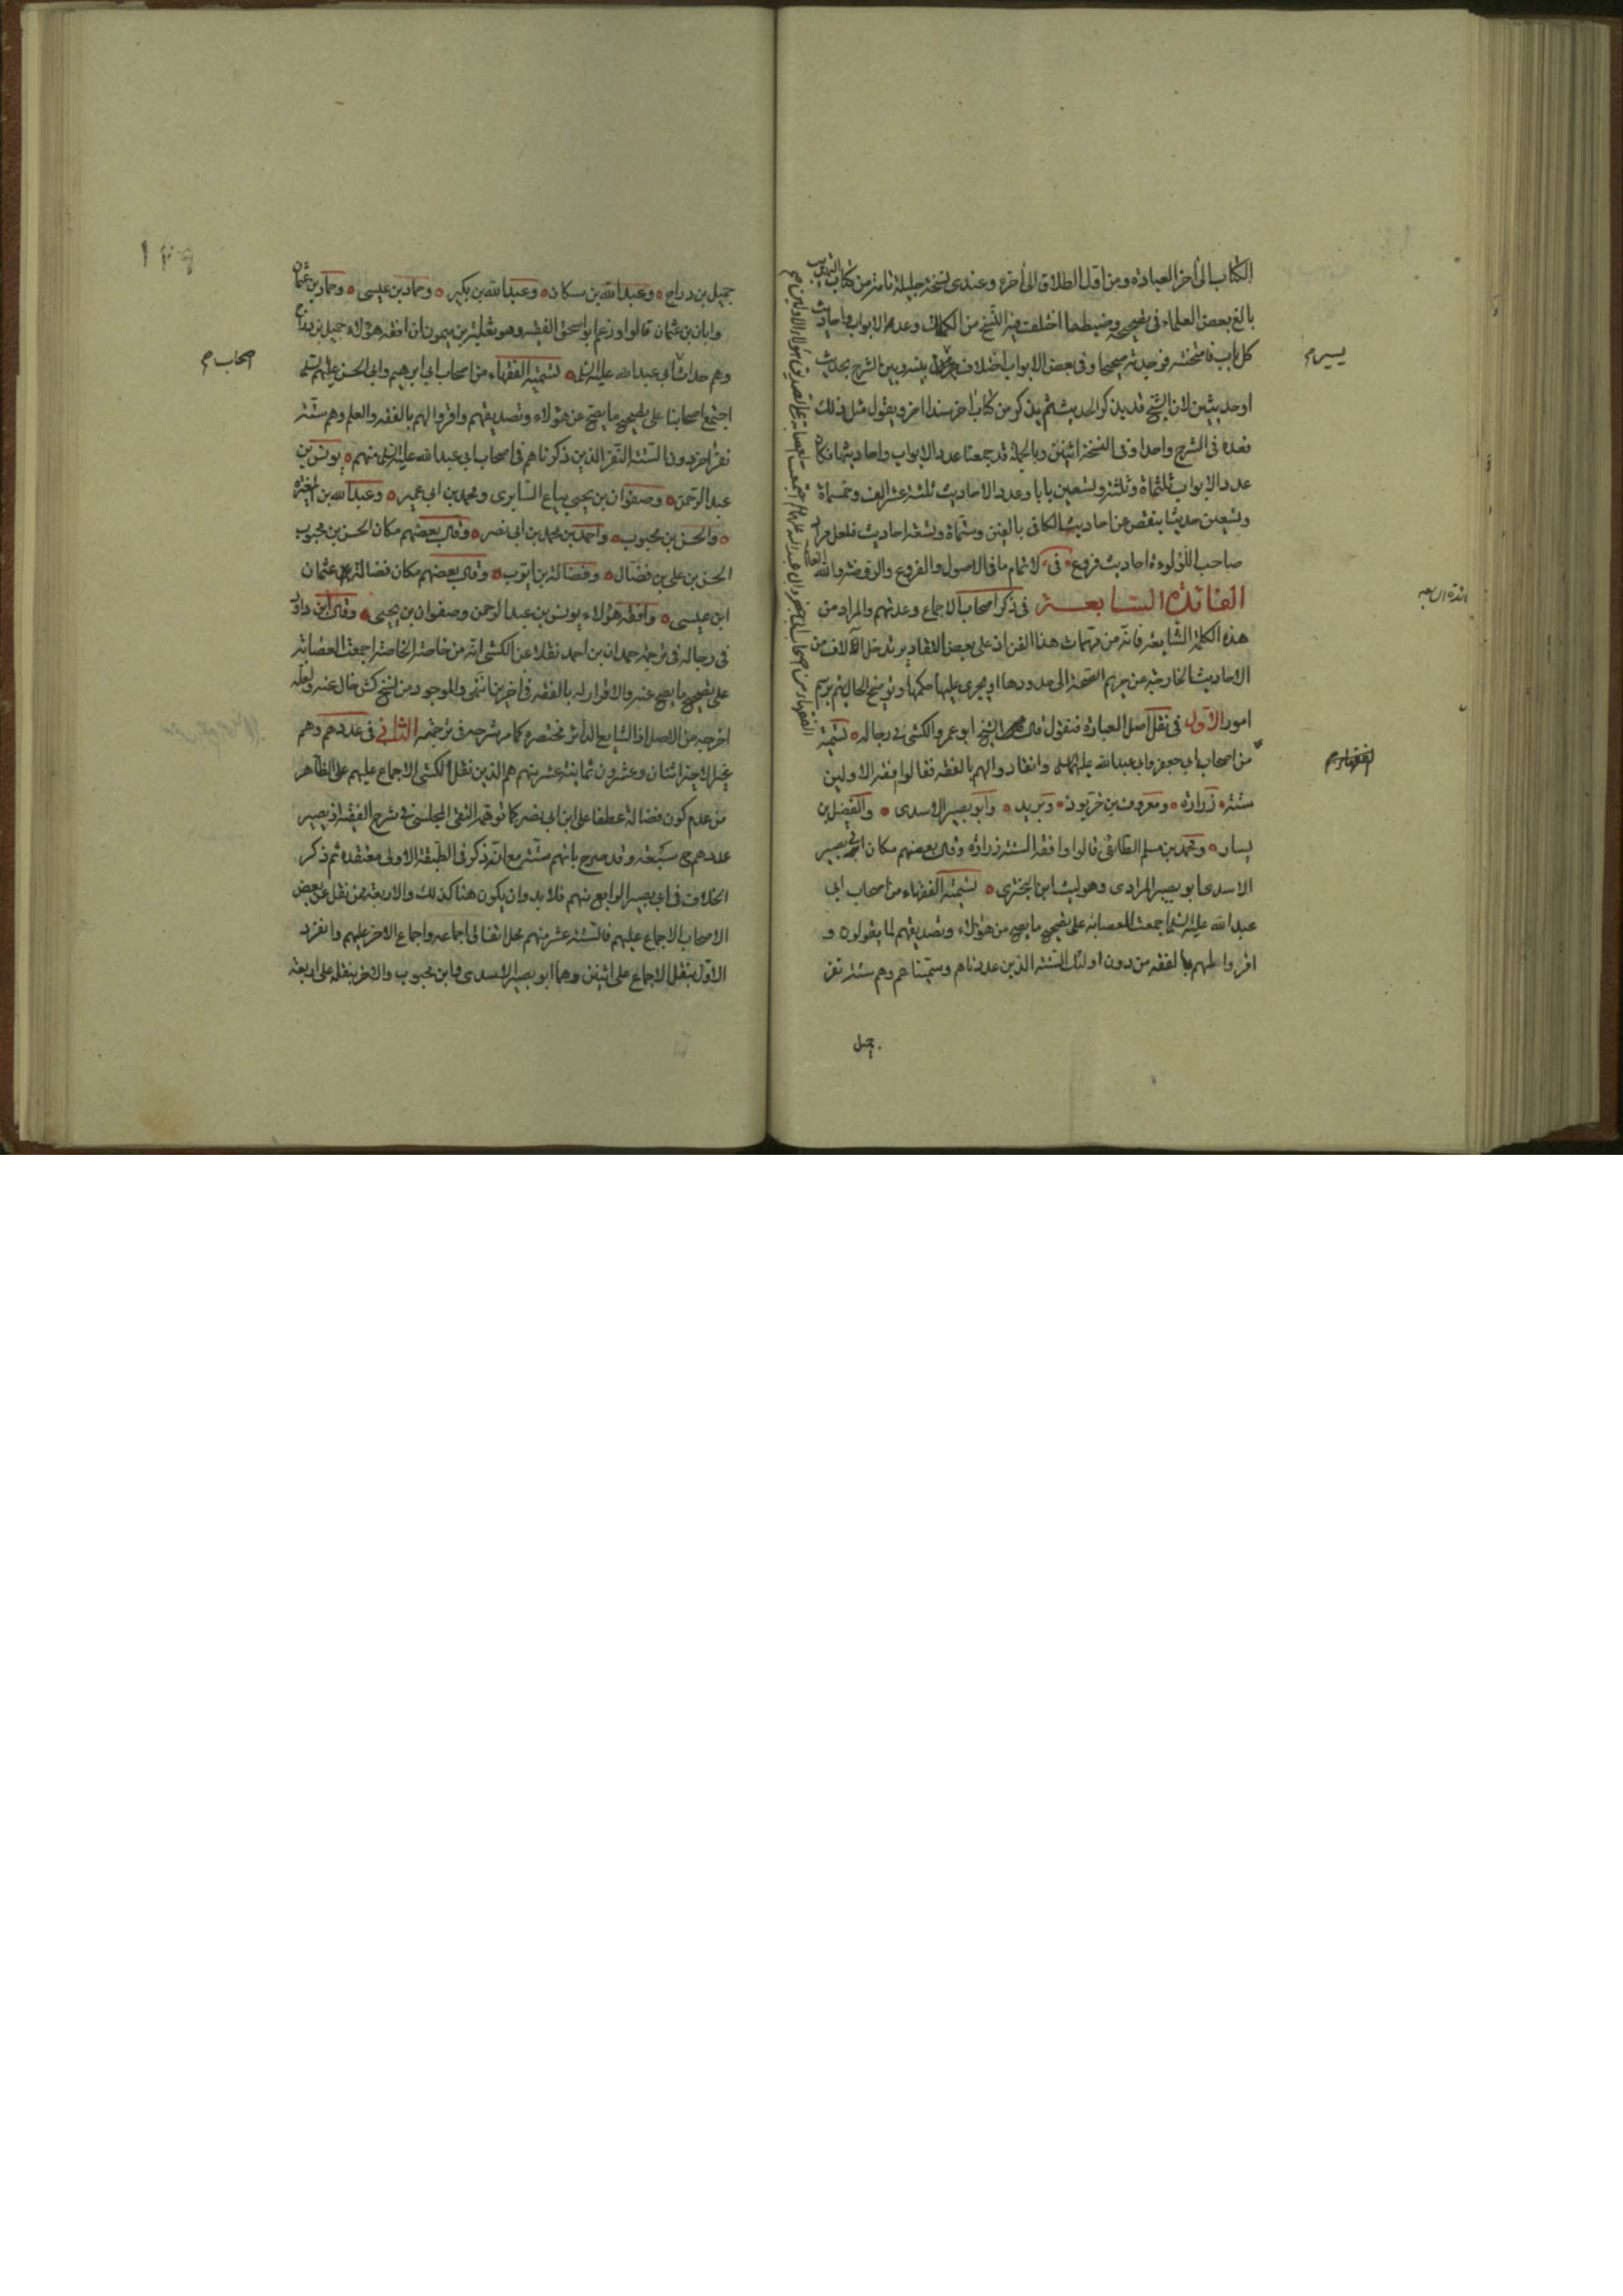 الكتاب الى اخر العبادة ومن اول الطلاق الى اخره وعندى نسخة جليلة تامة من كتاب التهذيب
بالغ بعض العلماء فى تصحيحه وضبطها اختلفت فيه النسخ من الكلمات وعدد الابواب واحاديث
كل باب فامتحنته فوجدته صحيحا وفى بعض الابواب اختلاف بينه وبين الشرح بحديث
يسير صح
او حديثين لان الشيخ قد يذكر الحديث ثم يذكر من كتاب اخر سندا اخر ويقول مثل ذلك
فعده فى الشرح واحدا وفى النسخة اثنين وبالجملة قد جمعنا عدد الابواب واحاديثها فكان
عدد الابواب ثلثماة وثلثة وتسعين بابا وعدد الاحاديث ثلثة عشر الف وخمسماة
وتسعين حديثا ينقص عن احاديث الكافى بالفين وستماة وتسعة احاديث فلعل مراد
صاحب اللؤلؤة احاديث فروع فى لاتمام ما فى الاصول والفروع والروضة والله العالم
الفائدة السابعة فى ذكر اصحاب الاجماع وعدتهم والمراد من
هذه الكلمة الشايعة فانه من مهمات هذا الفن اذ على بعض التقادير تدخل آلاف من
الاحاديث الخارجة عن حريم الصحة الى حدودها او يجرى عليها حكمها وتوضيح الحال يتم برسم
امور الاول فى نقل اصل العبارة فنقول قال الشيخ ابو عمرو الكشى فى رجاله تسمية
الفقهاء صح
من اصحاب ابي جعفر وابي عبد الله عليهما السلم وانقادوا لهم بالفقه فقالوا افقه الاولين
ستة زرارة ومعروف بن خربوذ وبريد وابو بصير الاسدى والفضيل بن
يسار ومحمد بن مسلم الطائفى قالوا وافقه الستة زرارة وقال بعضهم مكان ابي بصير
الاسدى ابو بصير المرادى وهو ليث ابن البخترى تسمية الفقهاء من اصحاب ابي
عبد الله عليه السلم اجمعت العصابة على تصحيح ما يصح من هؤلاء وتصديقهم لما يقولون و
اقروا لهم بالفقه من دون اولئك الستة الذين عددناهم وسميناهم وهم ستة نفر
جميل
الفقهاء من اصحاب ابي جعفر وابي عبد الله عليهما السلم اجتمعت العصابة على تصديق هؤلاء الاولين من
جميل بن دراج وعبد الله بن مسكان وعبد الله بن بكير وحماد بن عيسى وحماد بن عثمان
وابان بن عثمان قالوا وزعم ابو اسحق الفقيه وهو ثعلبة بن ميمون ان افقه هؤلاء جميل بن دراج
وهم حداث ابي عبد الله عليه السلم تسمية الفقهاء من اصحاب ابي ابرهيم وابي الحسن عليهم السلم
اصحاب صح
اجتمع اصحابنا على تصحيح ما يصح عن هؤلاء وتصديقهم واقروا لهم بالفقه والعلم وهم ستة
نفر اخر دون الستة النفر الذين ذكرناهم فى اصحاب ابي عبد الله عليه السلم منهم يونس بن
عبد الرحمن وصفوان بن يحيى بياع السابرى ومحمد بن ابي عمير وعبد الله بن المغيرة
والحسن بن محبوب واحمد بن محمد بن ابي نصر وقال بعضهم مكان الحسن بن محبوب
الحسن بن على بن فضال وفضالة بن ايوب وقال بعضهم مكان فضالة عثمان
ابن عيسى وافقه هؤلاء يونس بن عبد الرحمن وصفوان بن يحيى وقال ابن داود
فى رجاله فى ترجمة حمدان بن احمد نقلا عن الكشى انه من خاصة الخاصة اجمعت العصابة
على تصحيح ما يصح عنه والاقرار له بالفقه فى اخرين انتهى والموجود من نسخ كش خال عنه ولعله
اخرجه من الاصل اذ الشايع الدائر مختصره كما مر شرحه فى ترجمته الثانى فى عددهم وهم
غير الاخير اثنان وعشرون ثمانية عشر منهم هم الذين نقل الكشى الاجماع عليهم على الظاهر
من عدم كون فضالة عطفا على ابن ابي نصر كما توهمه التقى المجلسى فى شرح الفقيه اذ يصير
عددهم ح سبعة وقد صرح بانهم ستة مع انه ذكر فى الطبقة الاولى معتقده ثم ذكر
الخلاف فى ابي بصير الرابع منهم فلا بد وان يكون هنا كذلك والاربعة ممن نقل عن بعض
الاصحاب الاجماع عليهم فالستة عشر منهم محل اتفاق اجماعه واجماع الاخر عليهم وانفرد
الاول بنقل الاجماع على اثنين وهما ابو بصير الاسدى وابن محبوب والاخر بنقله على اربعة